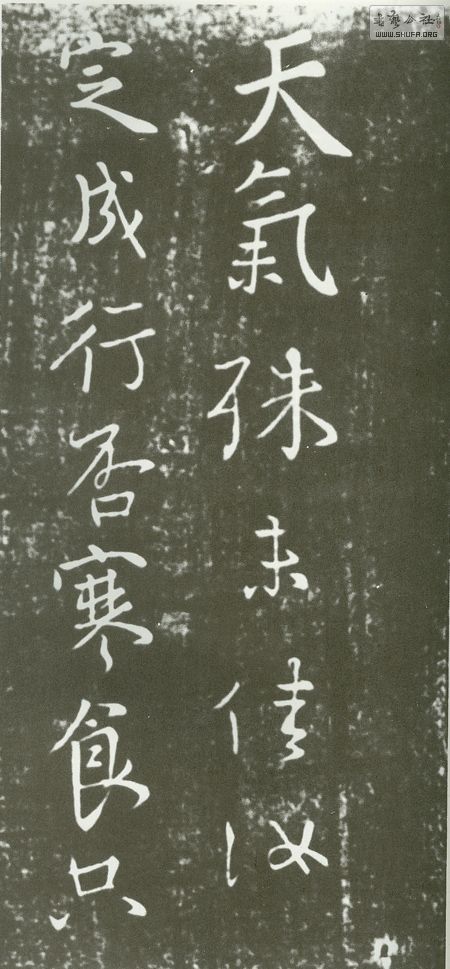 天氣殊未佳汝
定成行否寒食只
書藝公社
WWW.SHUFA.ORG